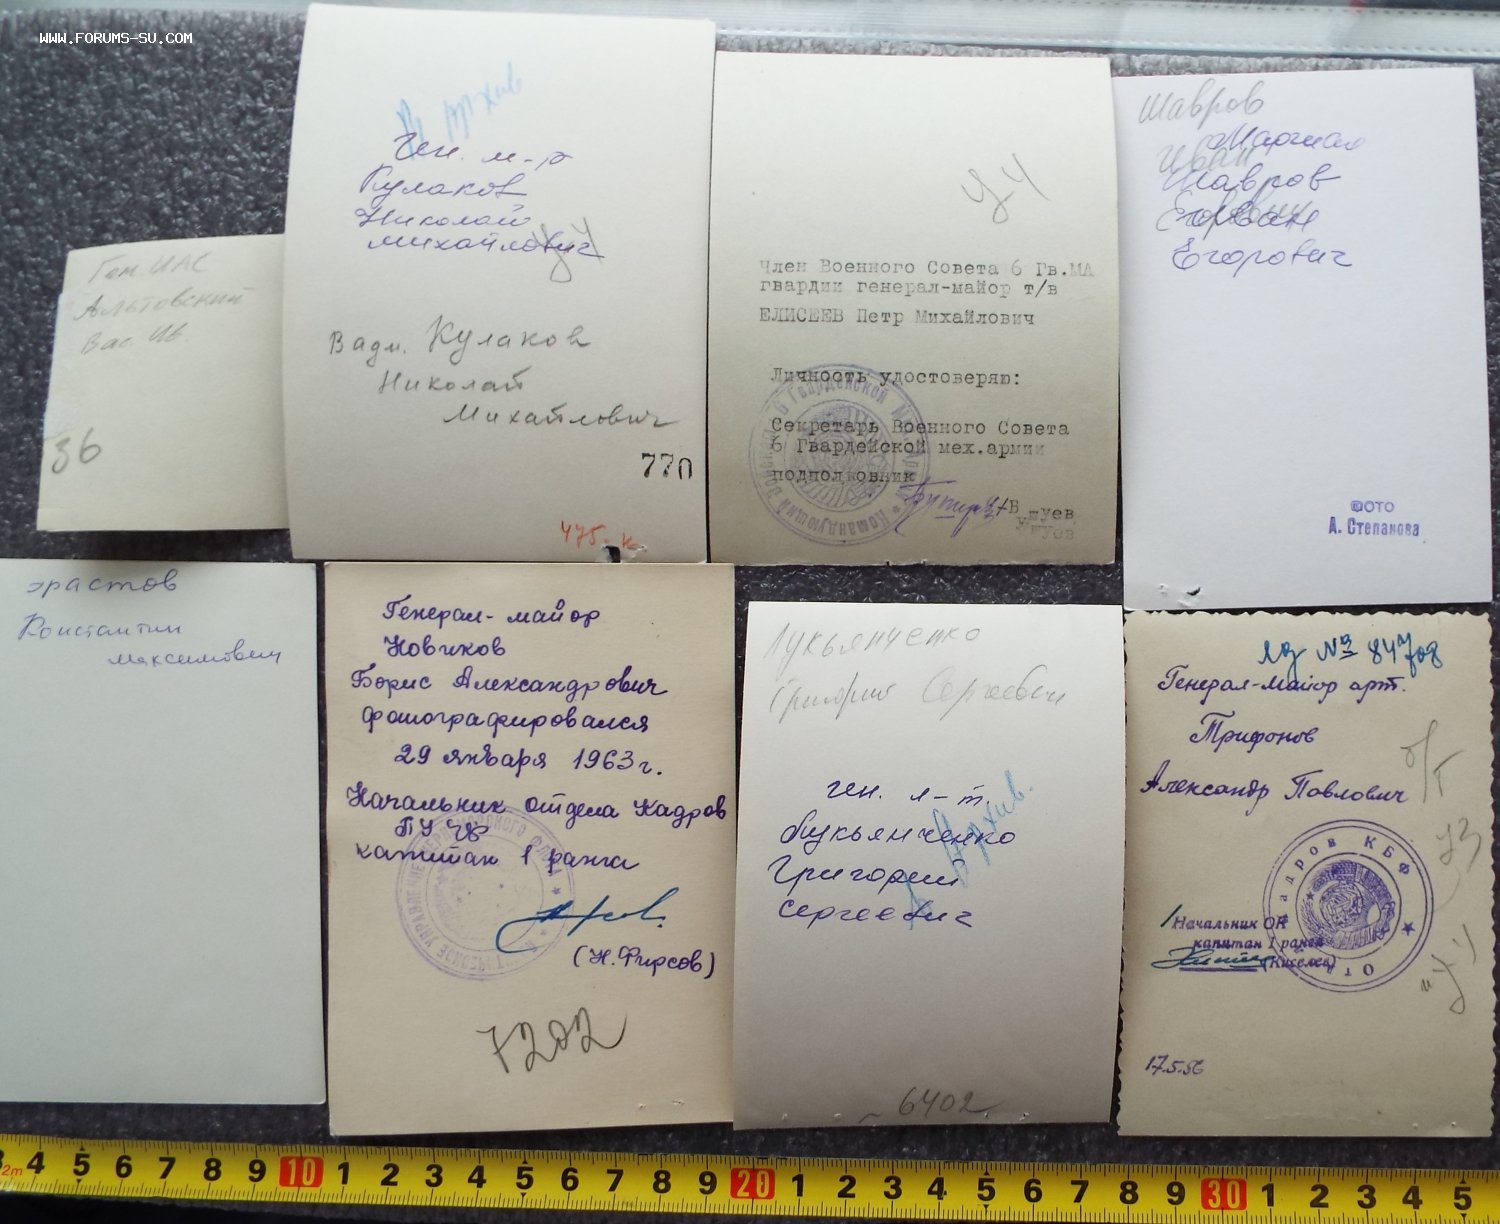 WWW.FORUMS-SU.COM
Ген. ИАС
Альтовский
Вас. Ив.
36
В архив
Ген. м-р
Кулаков
Николай
Михайлович
УЧ
Вадм. Кулаков
Николай
Михайлович
770
475-к
УЧ
Член Военного Совета 6 Гв.МА
гвардии генерал-майор т/в
ЕЛИСЕЕВ Петр Михайлович
Личность удостоверяю:
Секретарь Военного Совета
6 Гвардейской мех.армии
подполковник
Шавров
Иван
Егорович
Маршал
Шавров
Иван
Егорович
ФОТО
А. Степанова
Эрастов
Константин
Максимович
Генерал-майор
Новиков
Борис Александрович
фотографировался
29 января 1963 г.
Начальник отдела кадров
ПУ ЧФ
капитан 1 ранга
(Н. Фирсов)
7202
Лукьянченко
Григорий Сергеевич
ген. л-т.
В Архив.
Лукьянченко
Григорий
Сергеевич
6402
лд № 84708
Генерал-Майор арт.
Трифонов
Александр Павлович
о/т
УЗ
Отдел кадров КБФ
Начальник ОК
капитан 1 ранга
(Киселев)
"УЧ
17.5.56
2m 4 5 6 7 8 9 10 1 2 3 4 5 6 7 8 9 20 1 2 3 4 5 6 7 8 9 30 1 2 3 4 5